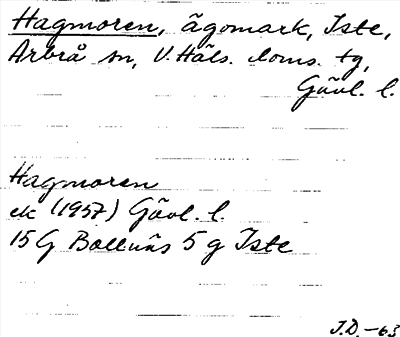 Hagmoren, ägomark, Iste,
Arbrå sn, V. Häls. doms. tg,
Gävl. l.
Hagmoren
ek (1957) Gävl. l.
15G Bollnäs 5 g Iste
J.D.-63